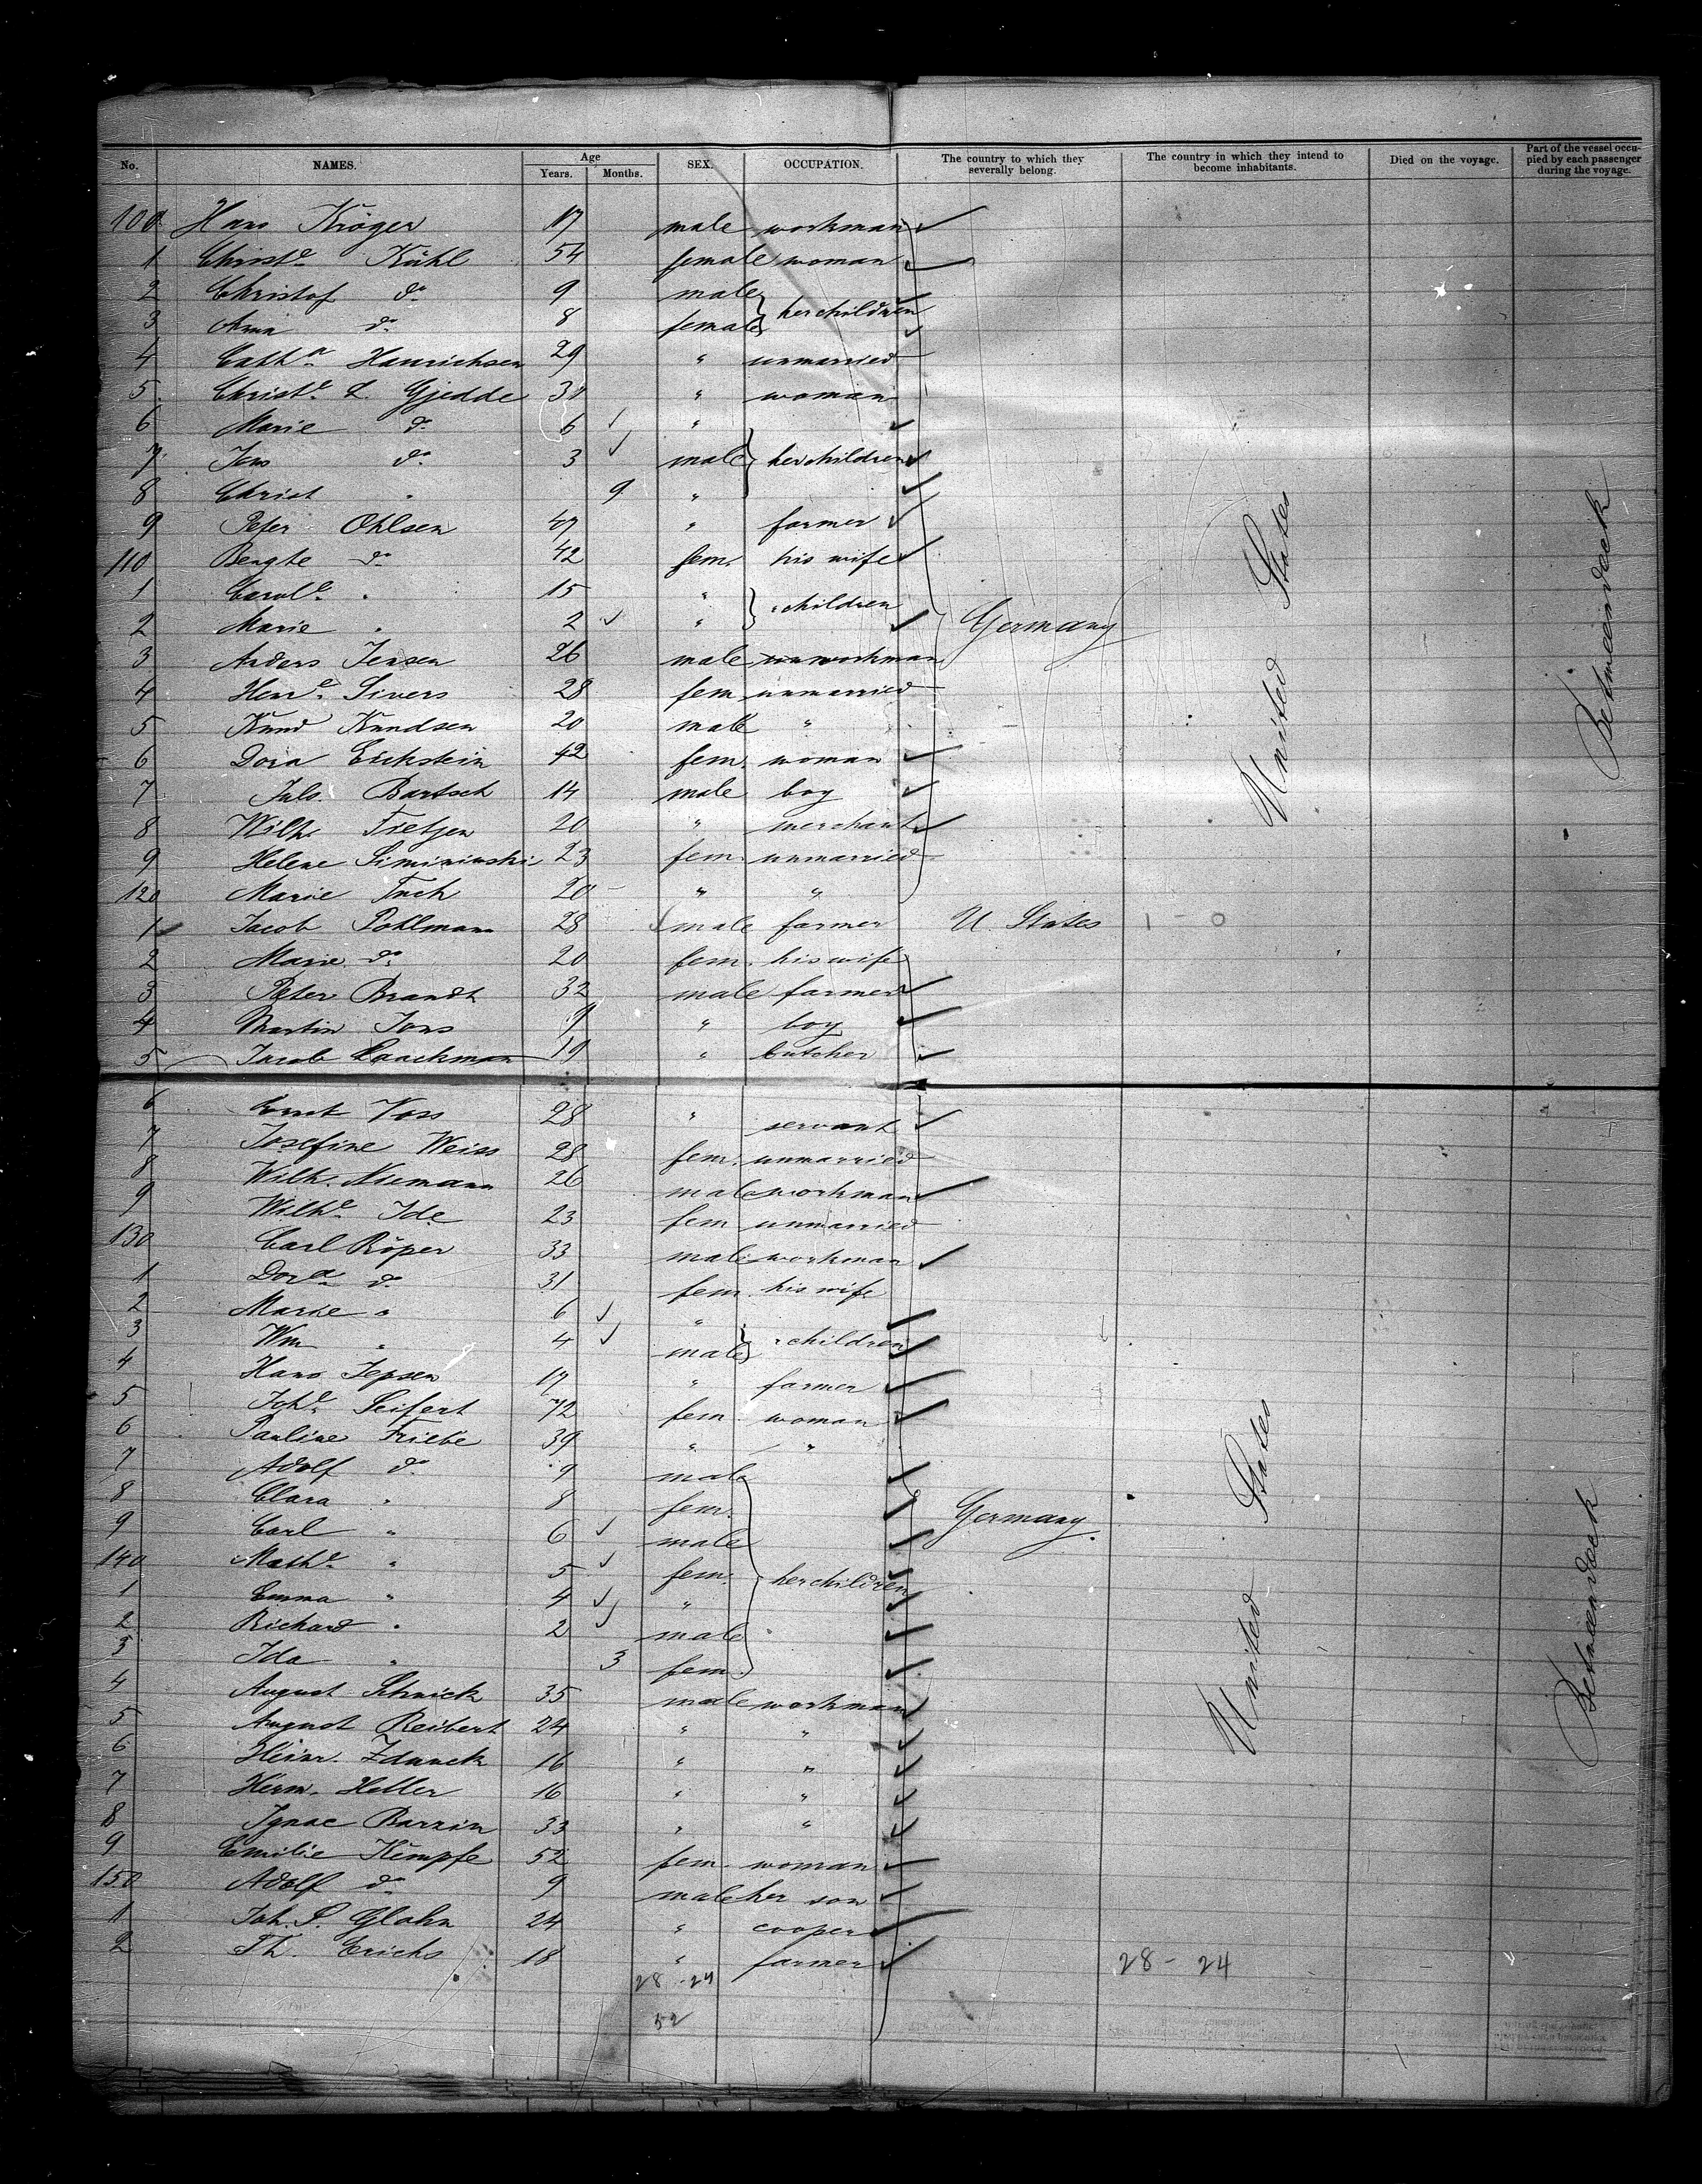 No. NAMES. Age Years. Months. SEX. OCCUPATION. The country to which they severally belong. The country in which they intend to become inhabitants. Died on the voyage. Part of the vessel occupied by each passenger during the voyage.
100 Hans Kröger 17 male workman
1 Christe Kühl 54 female woman
2 Christof do 9 male
3 Anna do 8 female } her children
4 Catha Hanrichsen 29 " unmarried
5 Christe L. Gjedde 37 " woman
6 Marie do 6 "
7 Jens do 3 male } her children
8 Christ " 9 "
9 Peter Ohlsen 47 " farmer
110 Bengte do 42 fem. his wife
1 Carole " 15 " } " children
2 Marie " 2 " Germany
3 Anders Jensen 26 male workman
4 Henre Sivers 28 fem unmarried
5 Knud Knudsen 20 male "
6 Dora Eichstein 42 fem. woman
7 Juls. Bartsch 14 male boy
8 Wilh. Tietjen 20 " merchant
9 Helene Siminiuski 23 fem. unmarried
120 Marie Tuch 20 " "
United States
Between deck
1 Jacob Pohlmann 28 male farmer U. States 1 - 0
2 Marie do 20 fem. his wife
3 Peter Brandt 32 male farmer
4 Martin Jons 9 " boy
5 Jacob Laackman 19 " butcher
6 Ernst Voss 28 " servant
7 Josefine Weiss 28 fem. unmarried
8 Wilh. Niemann 26 male workman
9 Wilhe Ide 23 fem unmarried
130 Carl Röper 33 male workman
1 Dora do 31 fem. his wife
2 Marie " 6 "
3 Wm " 4 male } " children
4 Hans Jepsen 17 " farmer
5 Johe Seifert 72 fem. woman
6 Pauline Friebe 39 " "
7 Adolf do 9 male
8 Clara " 8 fem. Germany.
9 Carl " 6 male
140 Mathe " 5 fem. } her children
1 Emma " 4 "
2 Richard " 2 male
3 Ida " 3 fem.
4 August Schnick 35 male workman
5 August Reibert 24 " "
6 Heinr. Zdunek 16 " "
7 Herm. Heller 16 " "
8 Ignac Barzin 33 " "
9 Emilie Kempfe 52 fem. woman
150 Adolf do 9 male her son
1 Joh. P. Glahn 24 " cooper
2 Th. Erichs 18 " farmer
28 - 24 28 - 24
52
United States
Between deck